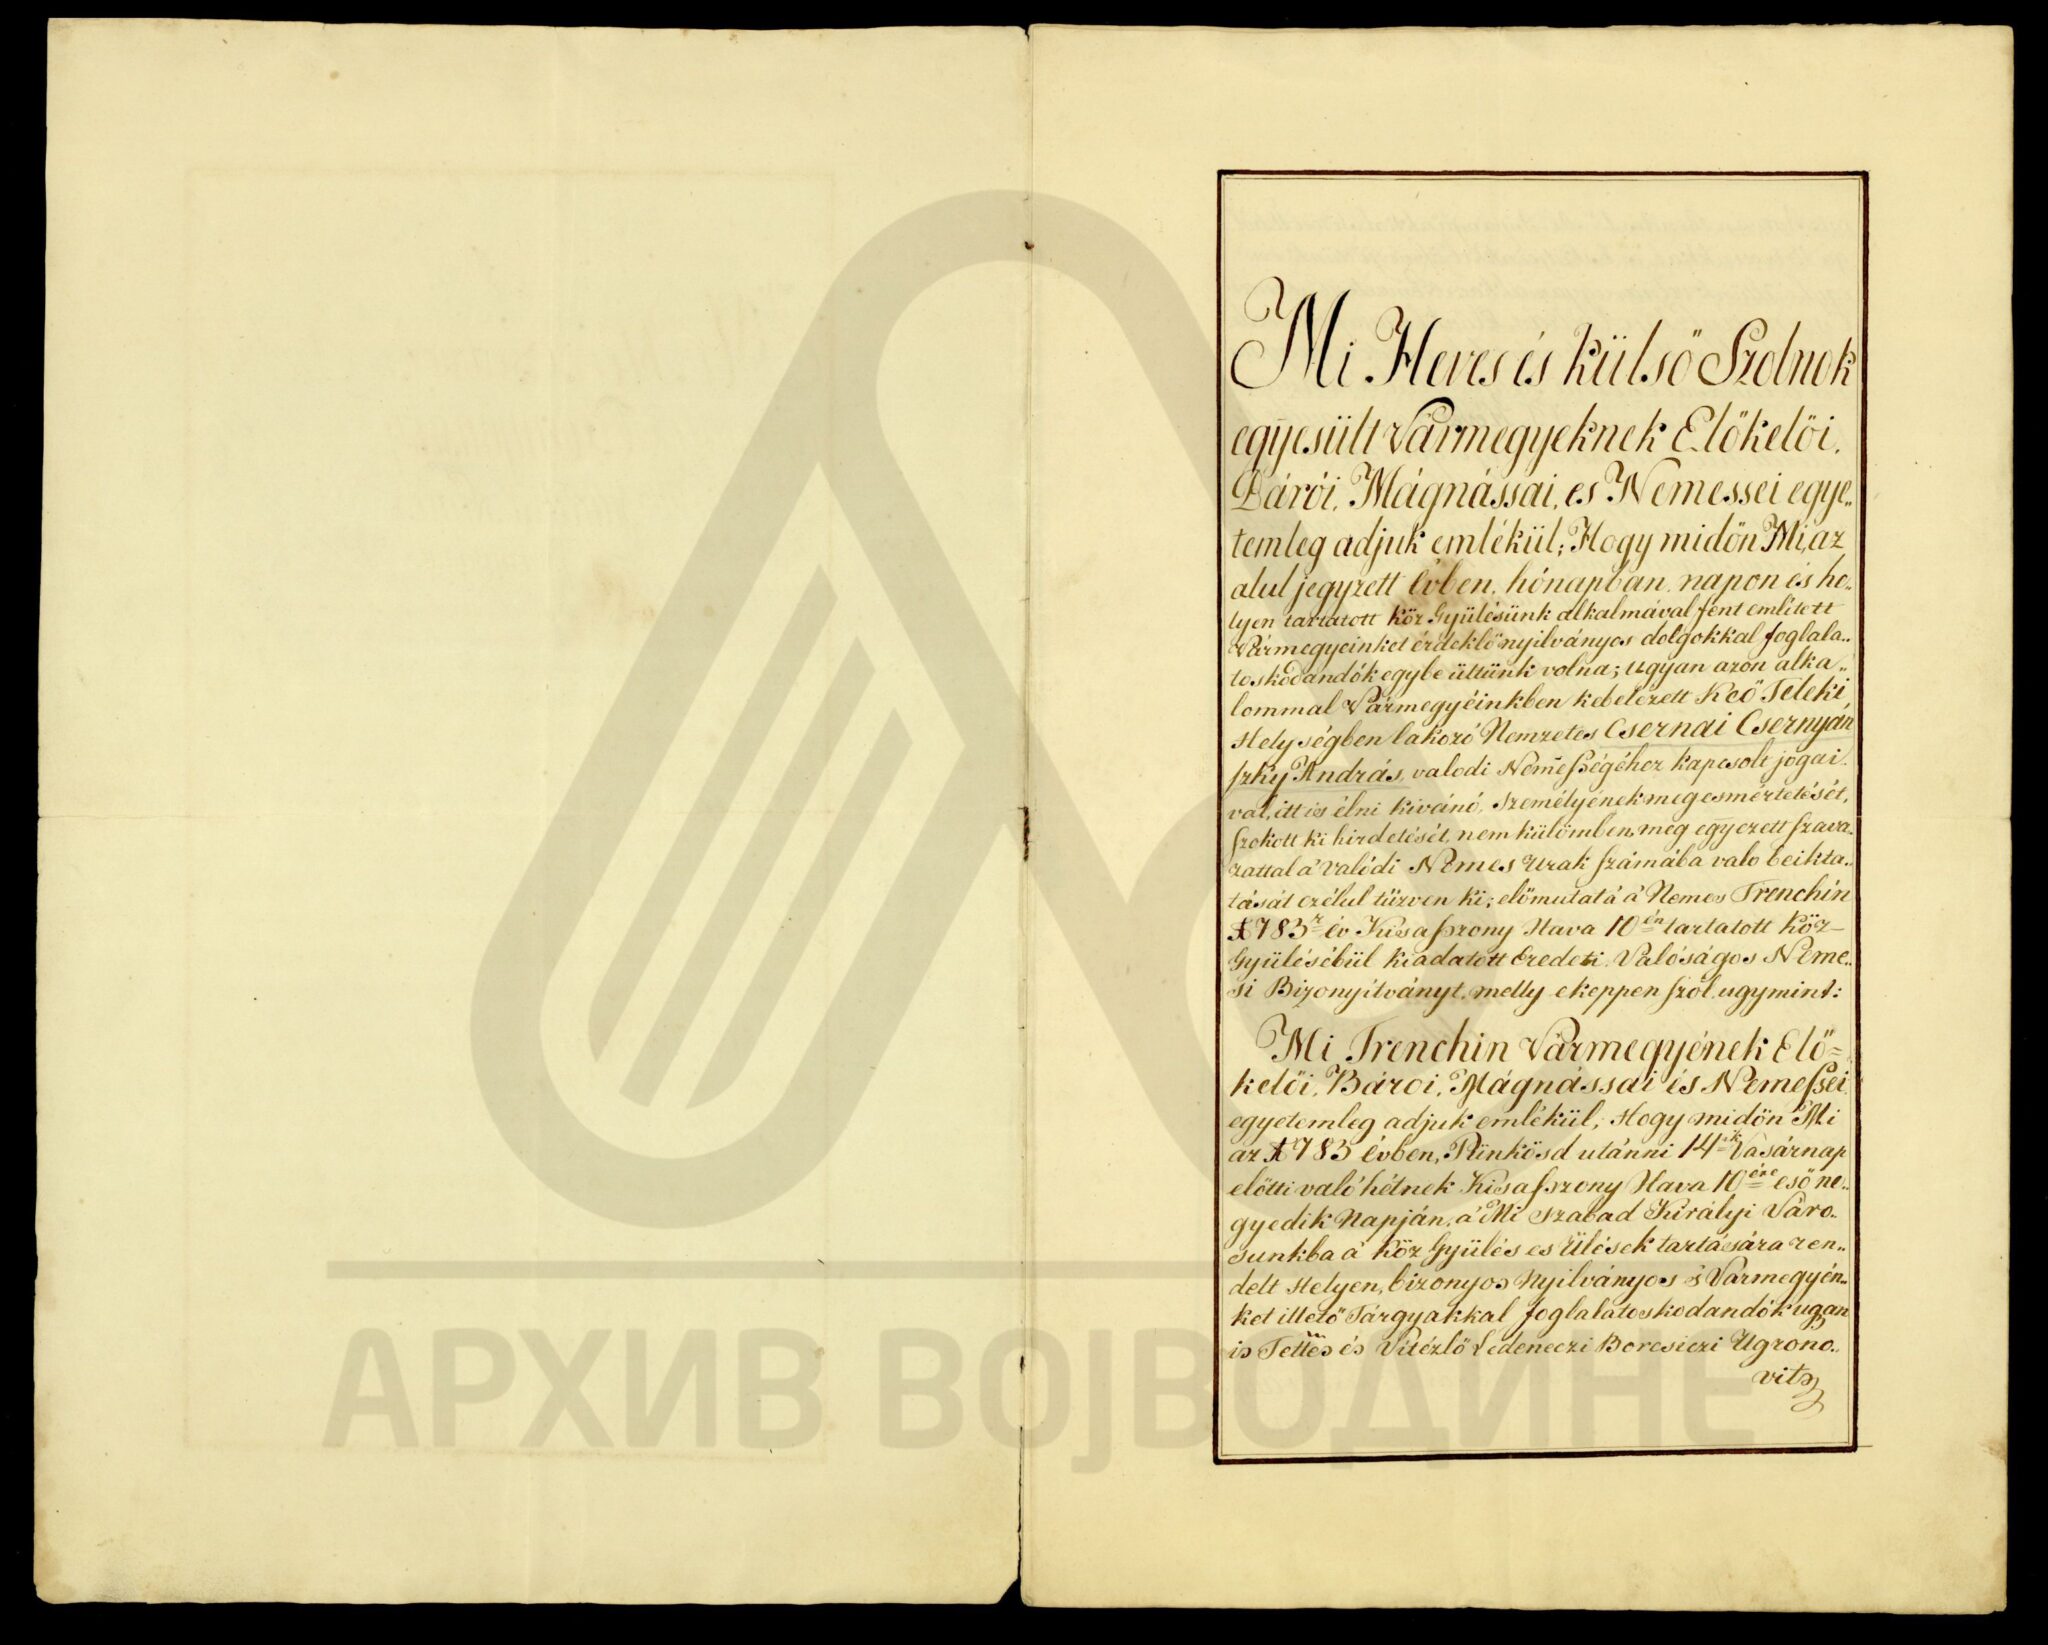 Mi Heves és külső Szolnok
egyesült Vármegyeknek Előkelői,
Bárói, Mágnássai, es Nemessei egye„
temleg adjuk emlékül; Hogy midőn Mi, az
alul jegyzett évben, hónapban, napon és he„
lyen tartatott köz Gyülésünk alkalmával fent említett
Vármegyeinket érdeklő nyilványos dolgokkal foglala„
toskodandók egybe ültünk volna; ugyan azon alka„
lommal Vármegyéinkben kebelezett Keő Teleki
Helységben lakozó Nemzetes Csernai Csernyán
szky András, valodi Nemeſségéhez kapcsolt jogai„
val, itt is élni kivánó, személyének meg esmértetését,
szokott ki hirdetését, nem külömben, meg egyezett szava„
zattal a' valódi Nemes Urak számába valo beikta„
tását czélul tüzven ki; előmutatá a' Nemes Trenchin
1783ʳ év Kisaſszony Hava 10én tartatott köz
Gyüléséböl kiadatott Eredeti Valóságos Neme„
si Bizonyítványt, melly ekeppen szól, ugymint:
Mi Trenchin Vármegyének Elő=
kelői, Bárói, Mágnássai és Nemeſsei
egyetemleg adjuk emlékül; Hogy midőn Mi
az 1783 évben, Pünkösd utánni 14ik Vasárnap
előtti való hétnek Kisaſszony Hava 10ére eső ne„
gyedik Napján, a' Mi Szabad Királyi Váro„
sunkba a' köz Gyülés es Ülések tartására ren„
delt Helyen, bizonyos Nyilványos és Vármegyén„
ket illető Tárgyakkal foglalatoskodandók ugan
is Tettes és Vitézlő Ledeneczi Borcsiczi Ugrono„
vits
АРХИВ ВОЈВОДИНЕ